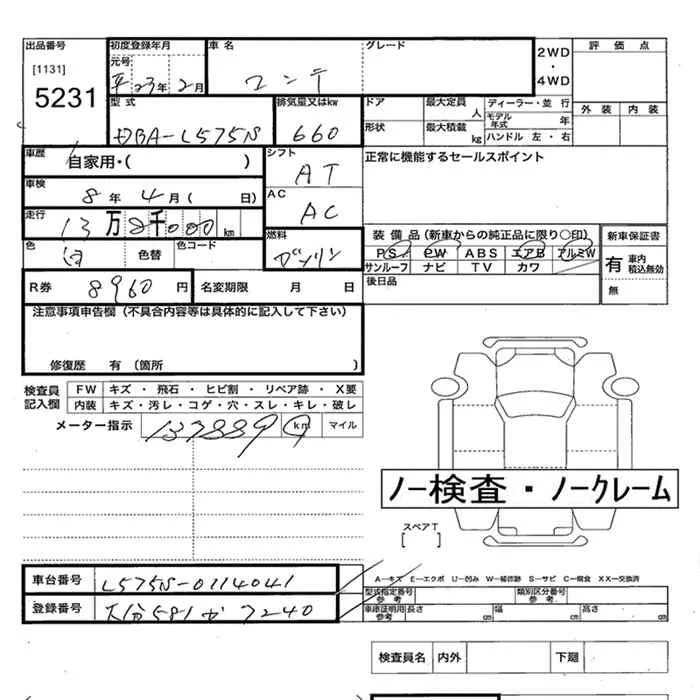 出品番号 初度登録年月 車名 グレード 2WD・4WD 評価点
[1131] 元号
5231 平23年2月 コンテ
外装 内装
型式 排気量又はkw ドア 最大定員 人 ディーラー・並行
DBA-L575S 660 形状 最大積載 kg モデル年式 年
ハンドル 左・右
車歴 自家用・( ) シフト AT 正常に機能するセールスポイント
車検 8年4月( 日) AC AC
走行 13万8千000km
装備品(新車からの純正品に限り○印) 新車保証書
色 白 色替 色コード 燃料 ガソリン
PS PW ABS エアB アルミW 有 車内 積込無効
サンルーフ ナビ TV カワ 無
R券 8960円 名変期限 月 日 後日品
注意事項申告欄(不具合内容等は具体的に記入して下さい)
修復歴 有(箇所 )
検査員記入欄 FW キズ・飛石・ヒビ割・リペア跡・X要
内装 キズ・汚レ・コゲ・穴・スレ・キレ・破レ
メーター指示 137889 km マイル
ノー検査・ノークレーム
スペアT
[ ]
車台番号 L575S-0114041
A-キズ E-エクボ U-凹み W-補修跡 S-サビ C-腐食 XX-交換済
型式指定番号参考 類別区分番号
登録番号 大分581か7240
車庫証明用参考 長さ cm 幅 cm 高さ cm
検査員名 内外 下廻